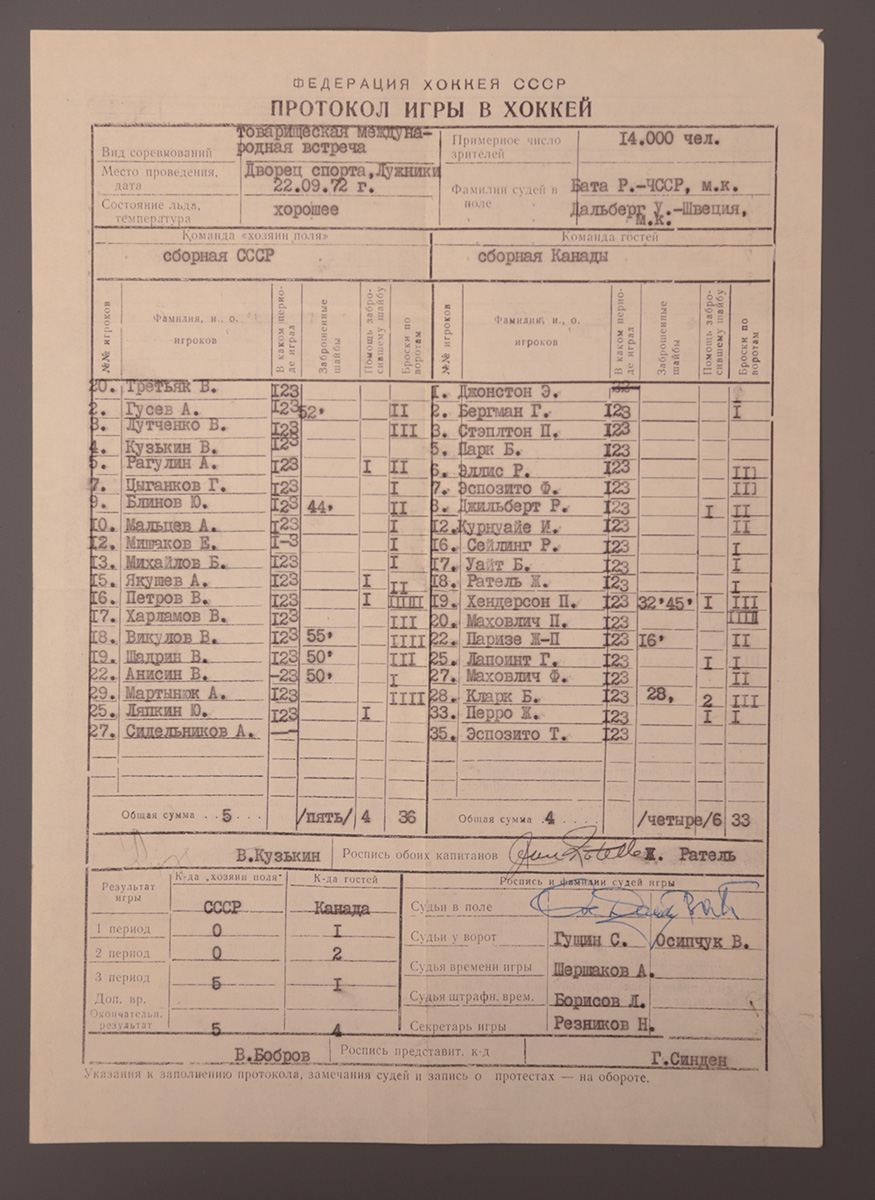 ФЕДЕРАЦИЯ ХОККЕЯ СССР
ПРОТОКОЛ ИГРЫ В ХОККЕЙ
Вид соревнований товарищеская междуна-
родная встреча
Примерное число зрителей 14.000 чел.
Место проведения, дата Дворец спорта,Лужники
22.09.72 г.
Фамилии судей в поле Бата Р.-ЧССР, м.к.
Дальберг У.-Швеция,
м.к.
Состояние льда, температура хорошее
Команда «хозяин поля» Команда гостей
сборная СССР сборная Канады
№№ игроков Фамилия, и., о. игроков В каком перио-де играл Заброшенные шайбы Помощь забро-сившему шайбу Броски по воротам №№ игроков Фамилия, и., о. игроков В каком перио-де играл Заброшенные шайбы Помощь забро-сившему шайбу Броски по воротам
20. Третьяк В. I23 1. Джонстон Э.
2. Гусев А. I23 52' II 2. Бергман Г. I23 I
3. Лутченко В. I23 III 3. Стэплтон П. I23
4. Кузькин В. I23 5. Парк Б. I23
5. Рагулин А. I23 I II 6. Эллис Р. I23 III
7. Цыганков Г. I23 I 7. Эспозито Ф. I23 III
9. Блинов Ю. I23 44' II 8. Джильберт Р. I23 I II
10. Мальцев А. I23 I 12. Курнуайе И. I23 II
12. Мишаков Е. I-3 I 16. Сейлинг Р. I23 I
13. Михайлов Б. I23 I 17. Уайт Б. I23 I
15. Якушев А. I23 I II 18. Ратель Ж. I23 I
16. Петров В. I23 I 19. Хендерсон П. I23 32'45' I III
17. Харламов В. I23 III 20. Махович П. I23
18. Викулов В. I23 55' IIII 22. Паризе Ж-П I23 16' II
19. Шадрин В. I23 50' III 25. Лапоинт Г. I23 I I
22. Анисин В. -23 50' I 27. Маховлич Ф. I23 II
29. Мартынюк А. I23 IIII 28. Кларк Б. I23 28, 2 III
25. Ляпкин Ю. I23 I 33. Перро Ж. I23 I I
27. Сидельников А. — 35. Эспозито Т. I23
Общая сумма . . 5 . . . /пять/ 4 36 Общая сумма . 4 . . . . /четыре/6 33
В.Кузькин Роспись обоих капитанов Ж. Ратель
Результат игры К-да „хозяин поля" К-да гостей Роспись и фамилии судей игры
СССР Канада Судьи в поле
1 период 0 I Судьи у ворот Гущин С. Осипчук В.
2 период 0 2 Судья времени игры Шершаков А.
3 период 5 I Судья штрафн. врем. Борисов Л.
Доп. вр.
Окончательн. результат 5 4 Секретарь игры Резников Н.
В.Бобров Роспись представит. к-д Г.Синден
Указания к заполнению протокола, замечания судей и запись о протестах — на обороте.